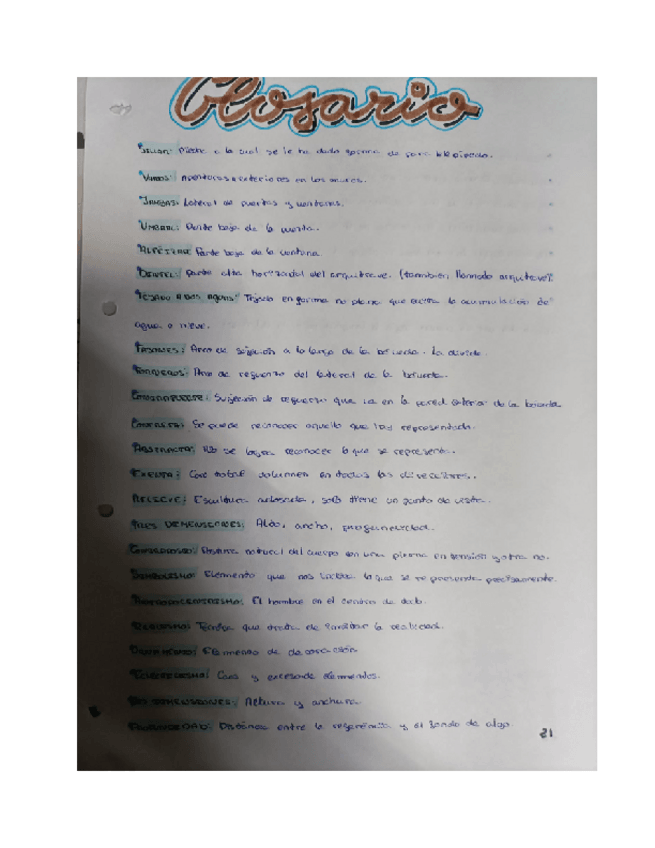 Glosario
SILLAR: Piedra a la cual se le ha dado forma de paralelepípedo.
VANOS: Aperturas exteriores en los muros.
JAMBAS: Lateral de puertas y ventanas.
UMBRAL: Parte baja de la puerta.
ALFÉIZAR: Parte baja de la ventana
DINTEL: parte alta horizontal del arquitrave. (también llamado arquitrave).
TEJADO A DOS AGUAS: Tejado en forma no plana que evita la acumulación de
agua o nieve.
FAJONES: Arco de sujeción a lo largo de la bóveda. La divide.
FORMEROS: Arco de refuerzo del lateral de la bóveda.
CONTRAFUERTE: Sujeción de refuerzo que va en la pared exterior de la bóveda
CONCRETA: Se puede reconocer aquello que está representado.
ABSTRACTA: No se logra reconocer lo que se representa.
EXENTA: Con todo volumen en todas las direcciones.
RELIEVE: Escultura adosada, solo tiene un punto de vista.
TRES DIMENSIONES: Alto, ancho, profundidad.
CONTRAPOSTO: Postura natural del cuerpo con una pierna en tensión y otra no.
SIMBOLISMO: Elemento que nos indica lo que se representa precisamente.
ANTROPOCENTRISMO: El hombre en el centro de todo.
REALISMO: Técnica que trata de imitar la realidad.
Elemento de decoración
Caos y exceso de elementos.
DOS DIMENSIONES: Altura y anchura
PROFUNDIDAD: Distancia entre la superficie y el fondo de algo.
21